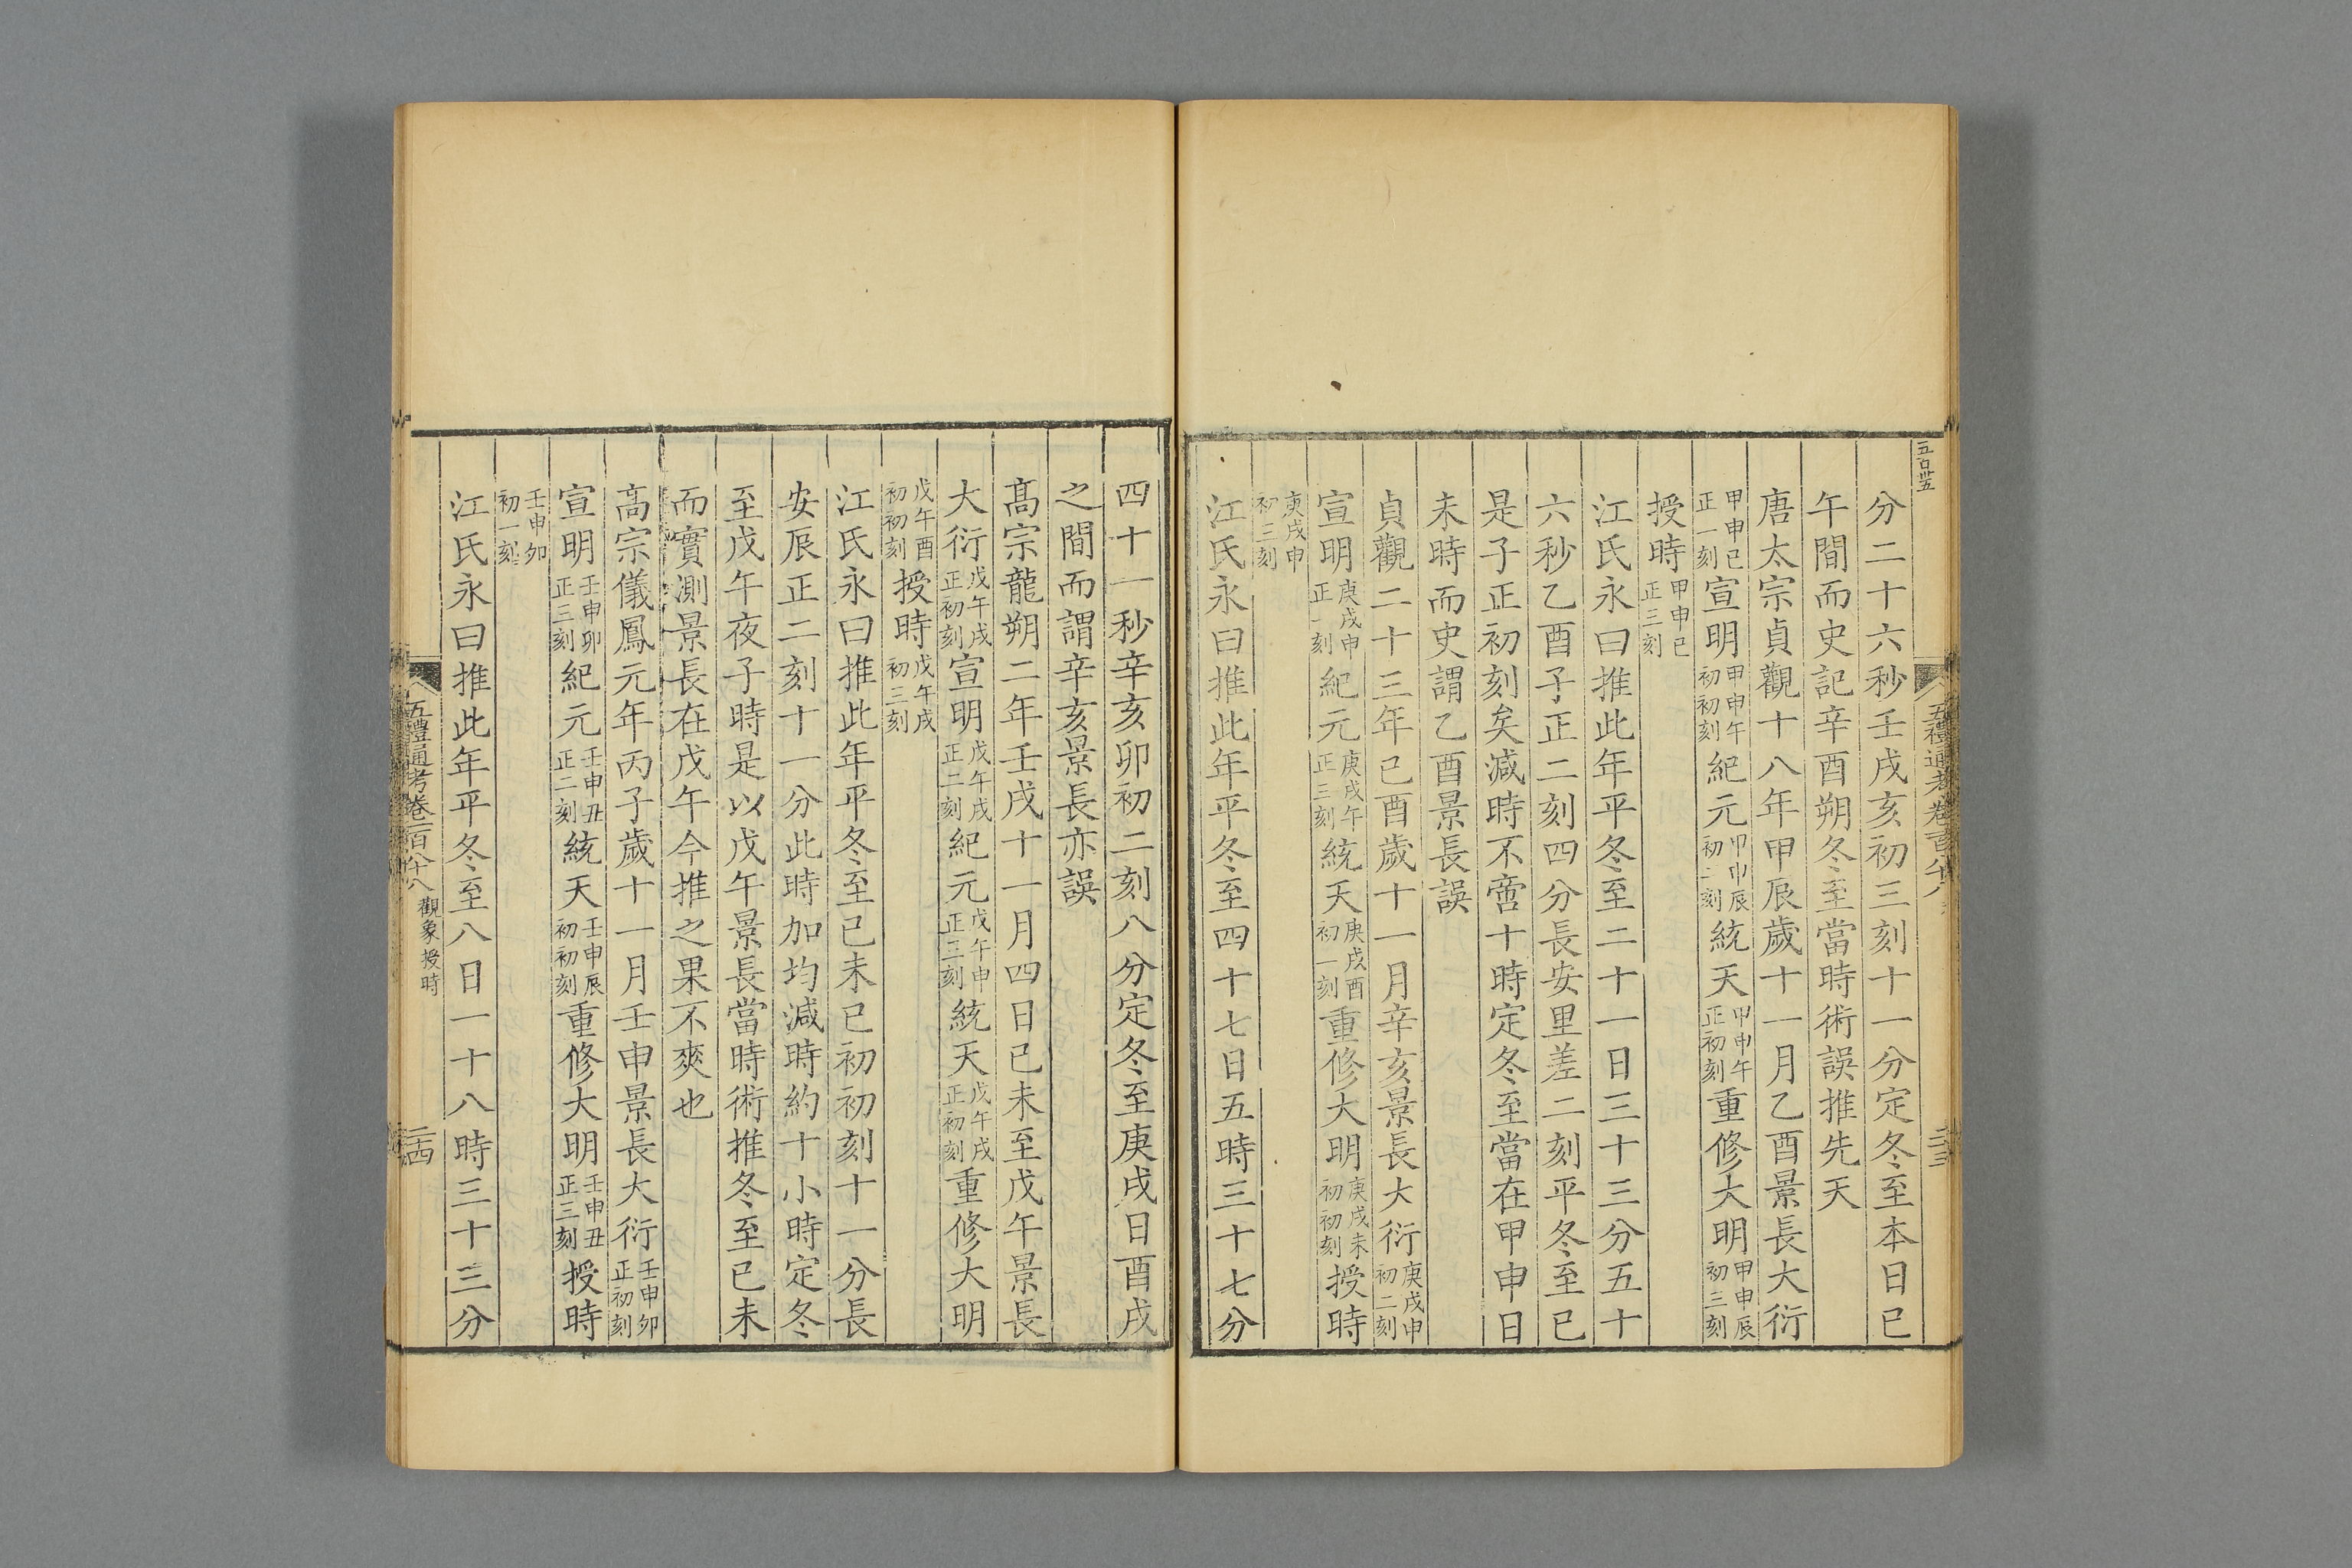 五百卅五
五禮通考卷一百八十八
二十三
分二十六秒壬戌亥初三刻十一分定冬至本日巳
午間而史記辛酉朔冬至當時術誤推先天
唐太宗貞觀十八年甲辰歲十一月乙酉景長大衍
甲申巳正一刻宣明甲申午初初刻紀元甲申辰初二刻統天甲申午正初刻重修大明甲申辰初三刻
授時甲申巳正三刻
江氏永曰推此年平冬至二十一日三十三分五十
六秒乙酉子正二刻四分長安里差二刻平冬至已
是子正初刻矣減時不啻十時定冬至當在甲申日
未時而史謂乙酉景長誤
貞觀二十三年己酉歲十一月辛亥景長大衍庚戌申初二刻
宣明庚戌申正一刻紀元庚戌午正三刻統天庚戌酉初一刻重修大明庚戌未初初刻授時
庚戌申初三刻
江氏永曰推此年平冬至四十七日五時三十七分
四十一秒辛亥卯初二刻八分定冬至庚戌日酉戌
之間而謂辛亥景長亦誤
高宗龍朔二年壬戌十一月四日己未至戊午景長
大衍戊午戌正初刻宣明戊午戌正二刻紀元戊午申正三刻統天戊午戌正初刻重修大明
戊午酉初初刻授時戊午戌初三刻
江氏永曰推此年平冬至己未巳初初刻十一分長
安辰正二刻十一分此時加均減時約十小時定冬
至戊午夜子時是以戊午景長當時術推冬至己未
而實測景長在戊午今推之果不爽也
高宗儀鳳元年丙子歲十一月壬申景長大衍壬申卯正初刻
宣明壬申卯正三刻紀元壬申丑正二刻統天壬申辰初初刻重修大明壬申丑正三刻授時
壬申卯初一刻
江氏永曰推此年平冬至八日一十八時三十三分
五禮通考卷一百八十八 觀象授時
二十四